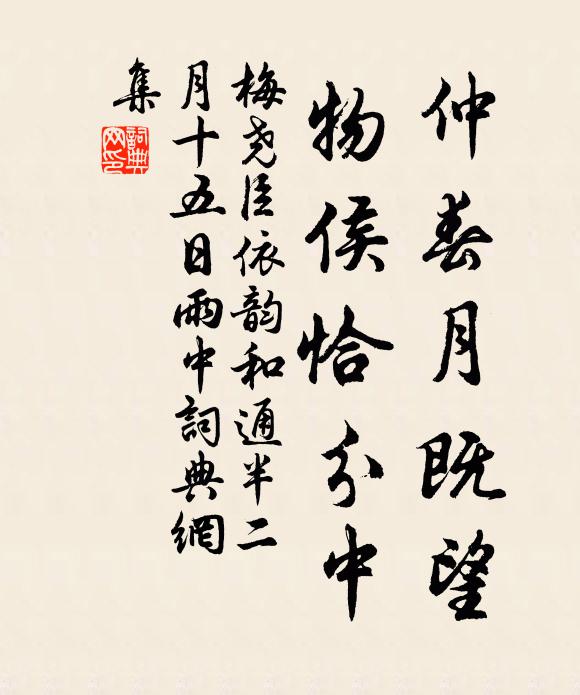 仲春月既望
物侯恰分中
梅尧臣依韵和通半二
月十五日雨中詞典網
集
詞典網印